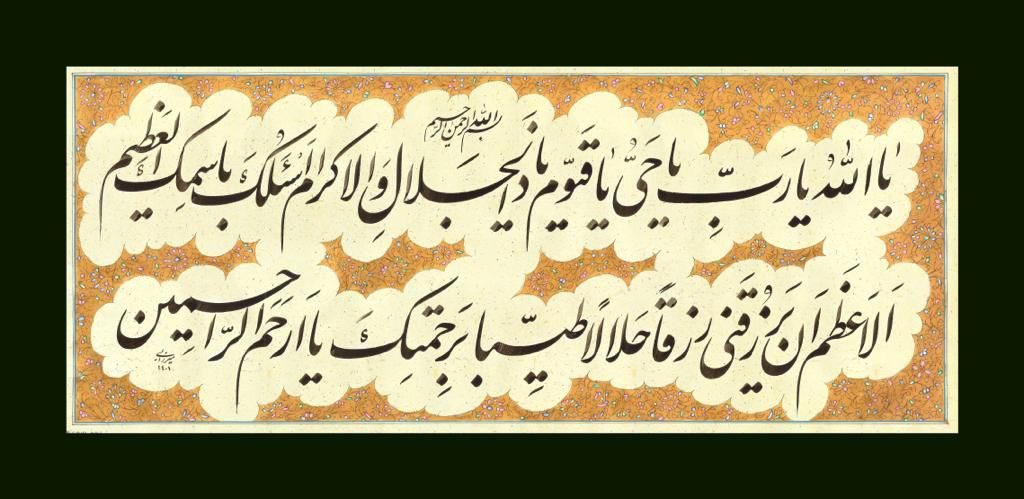 بسم الله الرحمن الرحیم
یا الله یا رَبِّ یا حَیُّ یا قَیّوُم یا ذَالجَلالِ وَالاِکرام اَسئَلُکَ بِاسمِکَ العَظیم
اَلاَعظَم اَن تَرزُقَنی رِزقاً حَلالاً طَیِّبا بِرَحمَتِکَ یا اَرحَمَ الرّاحِمین
۱۴۰۱